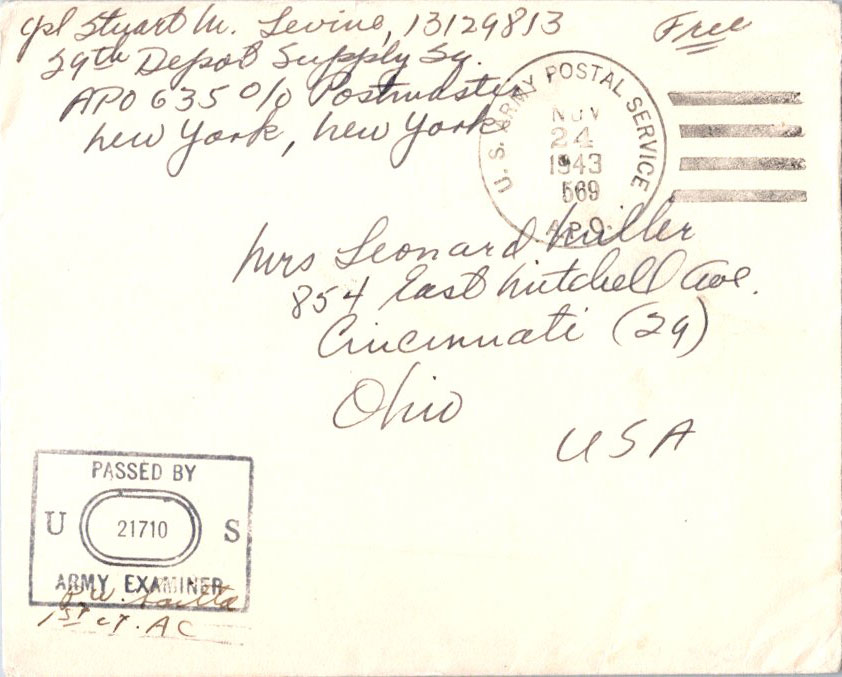 Cpl Stuart M. Levine, 13129813
Free
29th Depot Supply Sq.
APO 635 c/o Postmaster
New York, New York
U. S. ARMY POSTAL SERVICE
NOV
24
1943
569
A.P.O.
Mrs Leonard Miller
854 East Mitchell Ave.
Cincinnati (29)
Ohio
USA
PASSED BY
U 21710 S
ARMY EXAMINER
1st Lt. AC